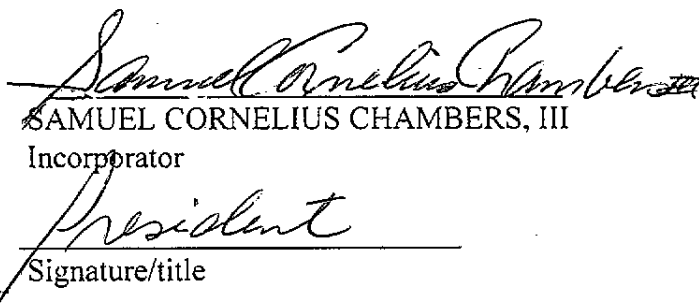 Samuel Cornelius Chambers III
SAMUEL CORNELIUS CHAMBERS, III
Incorporator
President
Signature/title